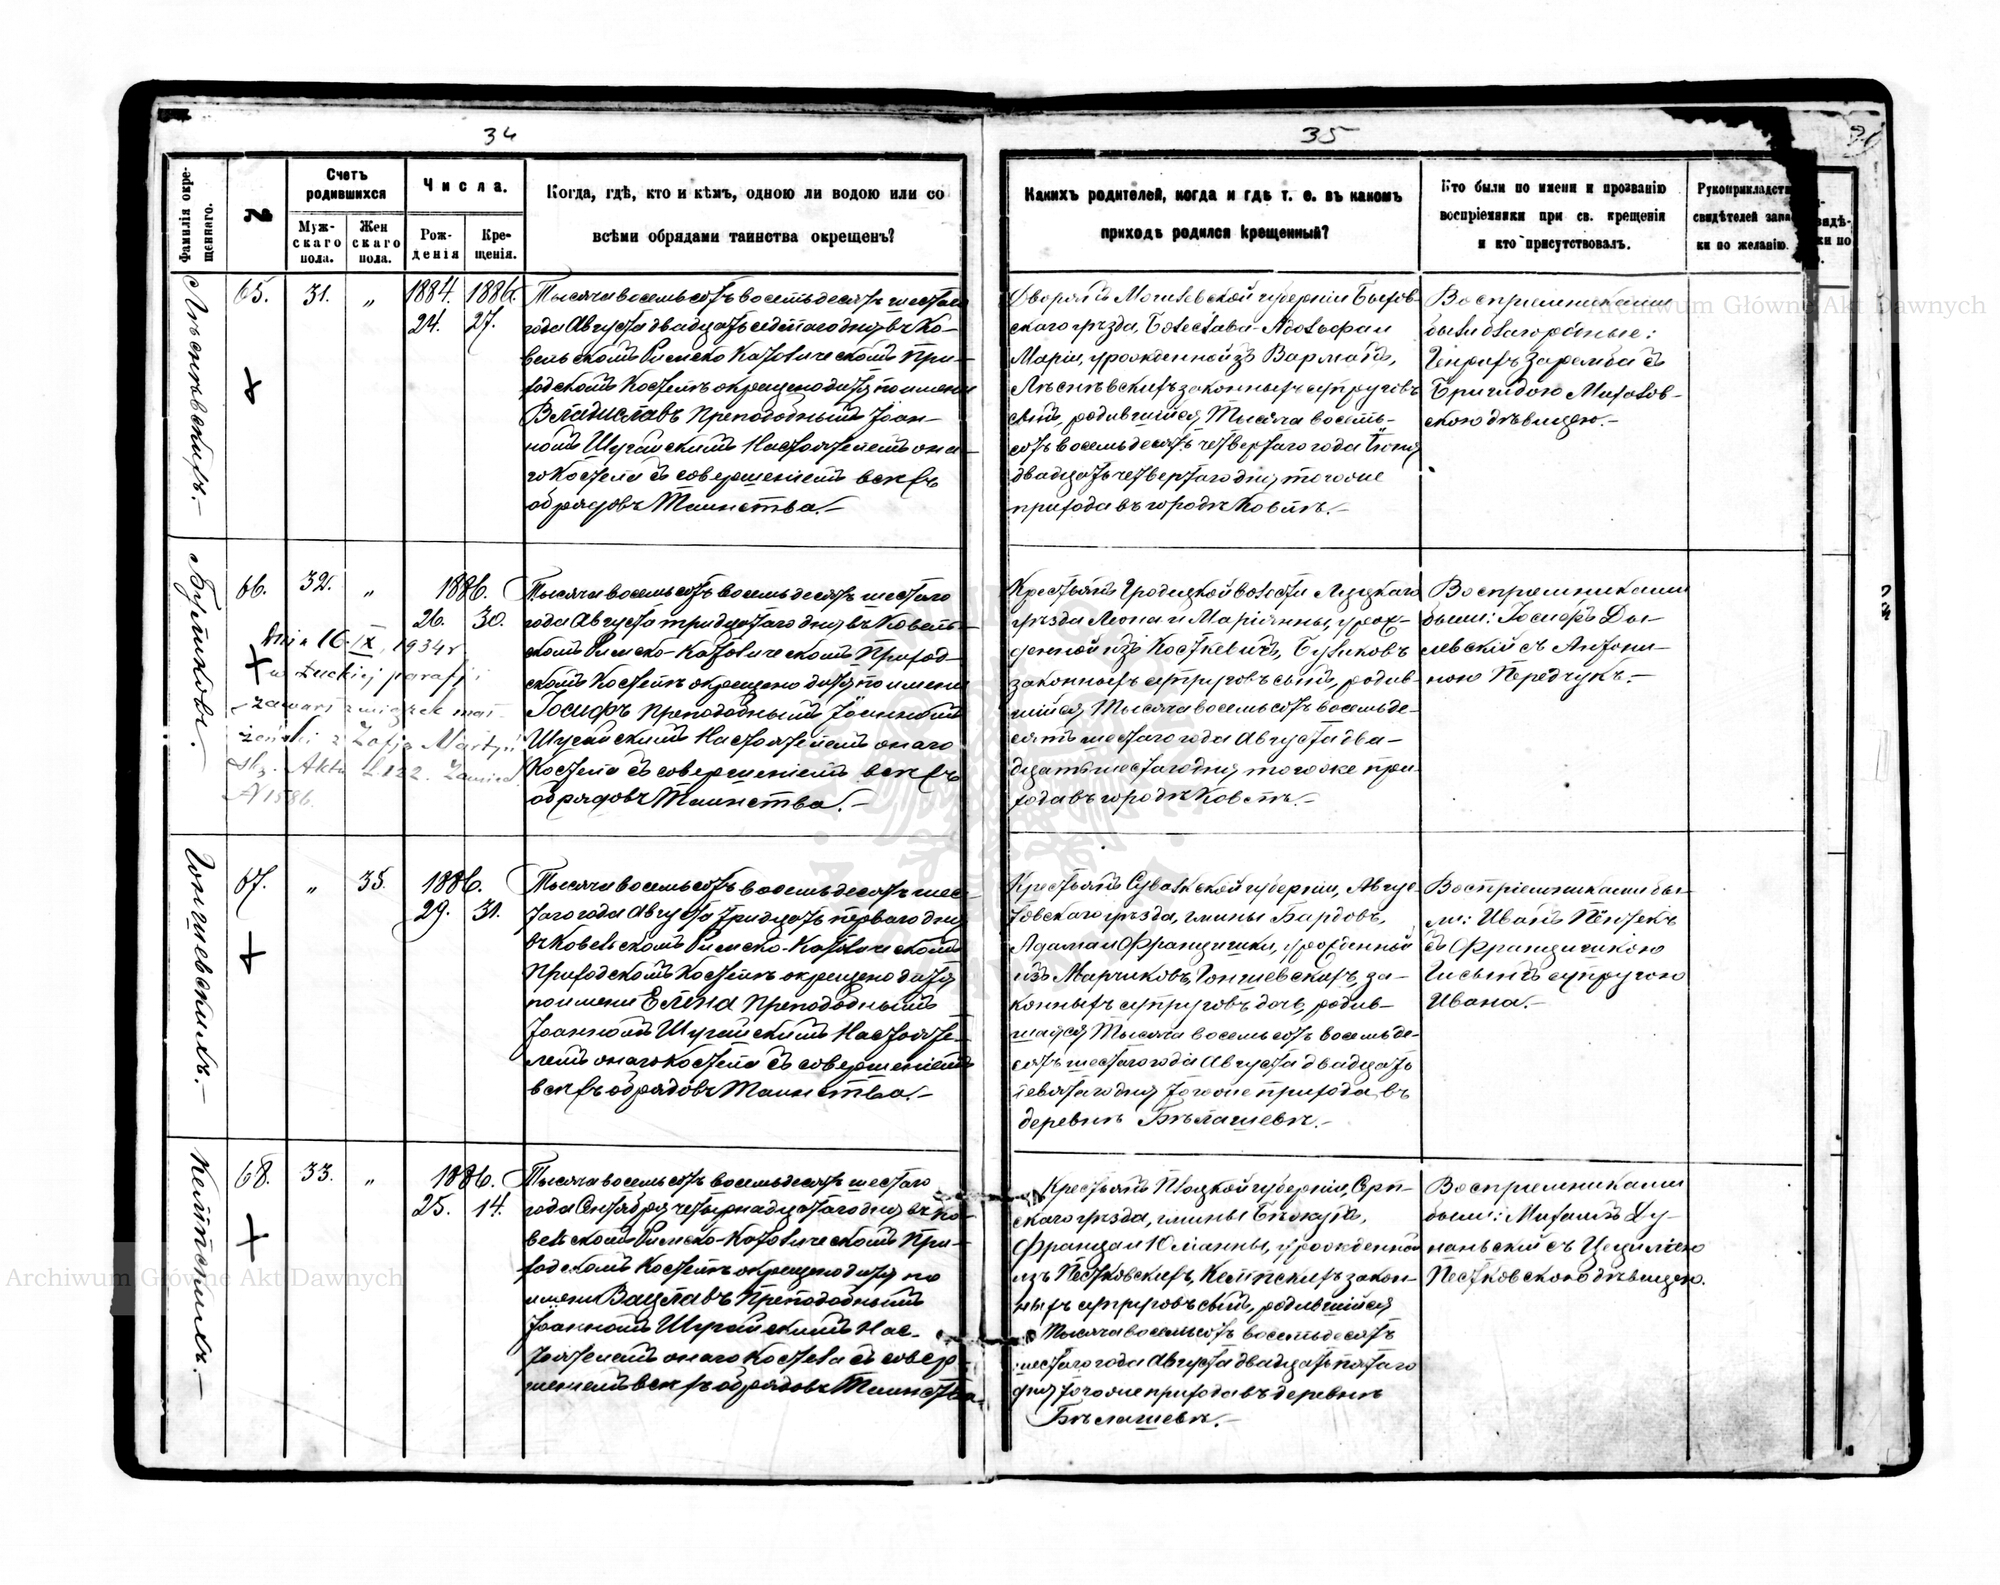 34
35
Фамилія окрещеннаго.
№
Счетъ родившихся
Мужскаго пола.
Жен скаго пола.
Числа.
Рожденія
Крещенія.
Когда, гдѣ, кто и кѣмъ, одною ли водою или со
всѣми обрядами таинства окрещенъ?
Какихъ родителей, когда и гдѣ т. е. въ какомъ
приходѣ родился крещенный?
Кто были по имени и прозванію
воспріемники при св. крещенія
и кто присутствовалъ.
Рукоприкладст
свидѣтелей запи
ки по желанію.
65.
31.
„
1884.
24.
1886.
27.
Тысяча восемьсотъ восемьдесятъ шестаго
года Августа двадцать седьмаго дня въ Ко-
вельскомъ Римско Католическомъ При-
ходскомъ Костелѣ окрещено дитя по имени
Владиславъ Преподобнымъ Іоан-
номъ Шугайскимъ Настоятелемъ она-
го Костела съ совершеніемъ всѣхъ
обрядовъ Таинства.—
Дворянъ Могилевской губерніи Быхов-
скаго уѣзда, Болеслава-Адольфа и
Маріи, урожденной изъ
законныхъ супруговъ
сынъ, родившійся Тысяча восемь-
сотъ восемьдесятъ четвертаго года
двадцать четвертаго дня, того же
прихода въ городѣ Ковлѣ.—
Воспріемниками
были благородные:
Заремба съ
Бригидою
скою дѣвицею.—
66.
32.
„
1886.
26.
30.
Тысяча восемьсотъ восемьдесятъ шестаго
года Августа тридцатаго дня въ Ковель-
скомъ Римско-Католическомъ Приход-
скомъ Костелѣ окрещено дитя по имени
Іосифъ Преподобнымъ Іоанномъ
Шугайскимъ Настоятелемъ онаго
Костела съ совершеніемъ всѣхъ
обрядовъ Таинства.—
dnia 16 IX, 1934 r
w Łuckiej parafji
zawarł związek mał-
żeński z Zofją
Aktu L 122.
Крестьянъ Городецкой волости Луцкаго
уѣзда Леона и Маріанны, урож-
денной изъ Косткевичъ,
законныхъ супруговъ сынъ, родив-
шійся Тысяча восемьсотъ восемьде-
сятъ шестаго года Августа два-
дцать шестаго дня того же при-
хода въ городѣ Ковлѣ.—
Воспріемниками
были: Іосифъ
съ Антони-
ною Передчукъ.—
67.
„
35.
1886.
29.
31.
Тысяча восемьсотъ восемьдесятъ шес-
таго года Августа тридцать перваго дня
въ Ковельскомъ Римско-Католическомъ
Приходскомъ Костелѣ окрещено дитя
по имени Елена Преподобнымъ
Іоанномъ Шугайскимъ Настояте-
лемъ онаго Костела съ совершеніемъ
всѣхъ обрядовъ Таинства.—
Крестьянъ Сувалкской губерніи, Авгус-
товскаго уѣзда, гмины
Адама и Францишки, урожденной
изъ Марчиковъ, за-
конныхъ супруговъ дочь, родив-
шаяся Тысяча восемьсотъ восемьде-
сятъ шестаго года Августа двадцать
девятаго дня того же прихода, въ
деревнѣ Бѣлашевѣ.—
Воспріемниками бы-
ли: Иванъ
съ Францишкою
супругою
Ивана.—
Кемпскихъ.—
68.
33.
„
1886.
25.
14.
Тысяча восемьсотъ восемьдесятъ шестаго
года Сентября четырнадцатаго дня въ Ко-
вельскомъ Римско-Католическомъ При-
ходскомъ Костелѣ окрещено дитя по
имени Вацлавъ Преподобнымъ
Іоанномъ Шугайскимъ Нас-
тоятелемъ онаго Костела съ совер-
шеніемъ всѣхъ обрядовъ Таинства
Крестьянъ Плоцкой губерніи, Серп-
скаго уѣзда, гмины
Франца и Юліанны, урожденной
изъ Пестковскихъ, Кемпскихъ закон-
ныхъ супруговъ сынъ, родившійся
Тысяча восемьсотъ восемьдесятъ
шестаго года Августа двадцать пятаго
дня того же прихода въ деревнѣ
Бѣлашевѣ.—
Воспріемниками
были: Михаилъ
съ Цециліею
Пестковскою дѣвицею.
Archiwum Główne Akt Dawnych
Archiwum Główne Akt Dawnych